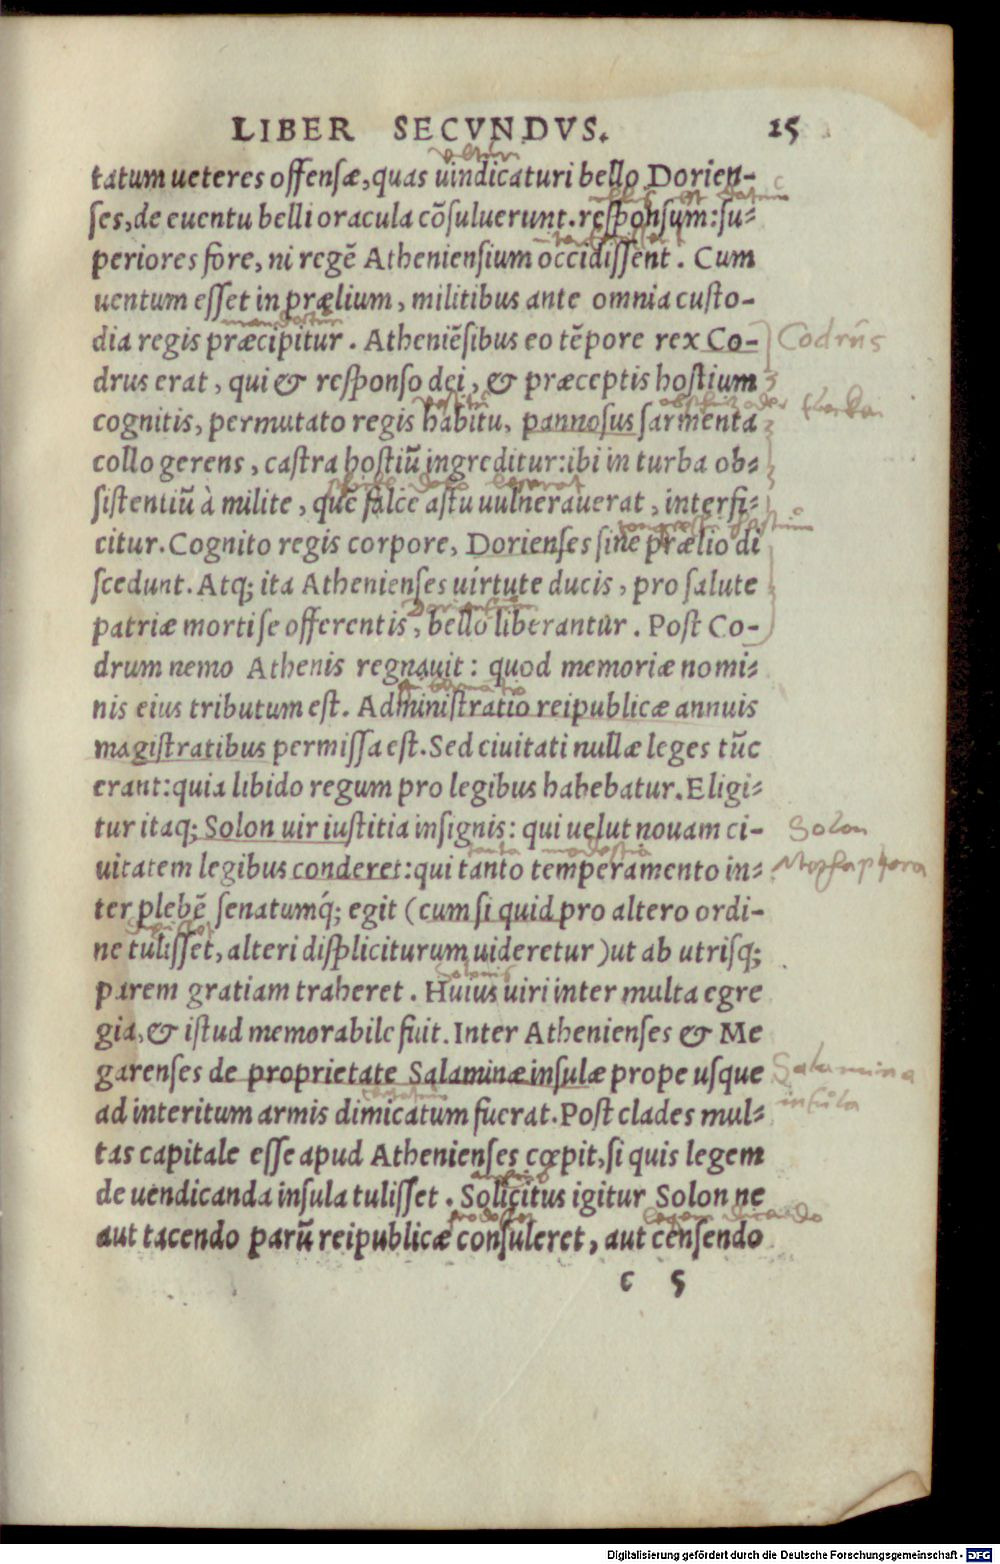 LIBER SECVNDVS. 15
tatum ueteres offensæ, quas uindicaturi bello Dorien-
ses, de euentu belli oracula cõsuluerunt. responsum: su-
periores fore, ni regẽ Atheniensium occidissent. Cum
uentum esset in prælium, militibus ante omnia custo-
mandatur
dia regis præcipitur. Atheniẽsibus eo tẽpore rex Co-
Codrus
drus erat, qui & responso dei, & præceptis hostium
cognitis, permutato regis habitu, pannosus sarmenta
collo gerens, castra hostiũ ingreditur: ibi in turba ob-
sistentiũ à milite, quẽ falce astu uulnerauerat, interfi-
citur. Cognito regis corpore, Dorienses sine prælio di
scedunt. Atq; ita Athenienses uirtute ducis, pro salute
Doriensium
patriæ morti se offerentis, bello liberantur. Post Co-
drum nemo Athenis regnauit: quod memoriæ nomi-
nis eius tributum est. Administratio reipublicæ annuis
magistratibus permissa est. Sed ciuitati nullæ leges tũc
erant: quia libido regum pro legibus habebatur. Eligi-
tur itaq; Solon uir iustitia insignis: qui uelut nouam ci-
Solon
tanta modestia
uitatem legibus conderet: qui tanto temperamento in-
ter plebẽ senatumq́; egit (cum si quid pro altero ordi-
ne tulisset, alteri displiciturum uideretur) ut ab utrisq;
Solonis
parem gratiam traheret. Huius uiri inter multa egre
gia, & istud memorabile fuit. Inter Athenienses & Me
garenses de proprietate Salaminæ insulæ prope usque
Salamina
insula
ad interitum armis dimicatum fuerat. Post clades mul-
tas capitale esse apud Athenienses cœpit, si quis legem
de uendicanda insula tulisset. Solicitus igitur Solon ne
prodesset legem dicendo
aut tacendo parũ reipublicæ consuleret, aut censendo
c 5
Digitalisierung gefördert durch die Deutsche Forschungsgemeinschaft - DFG